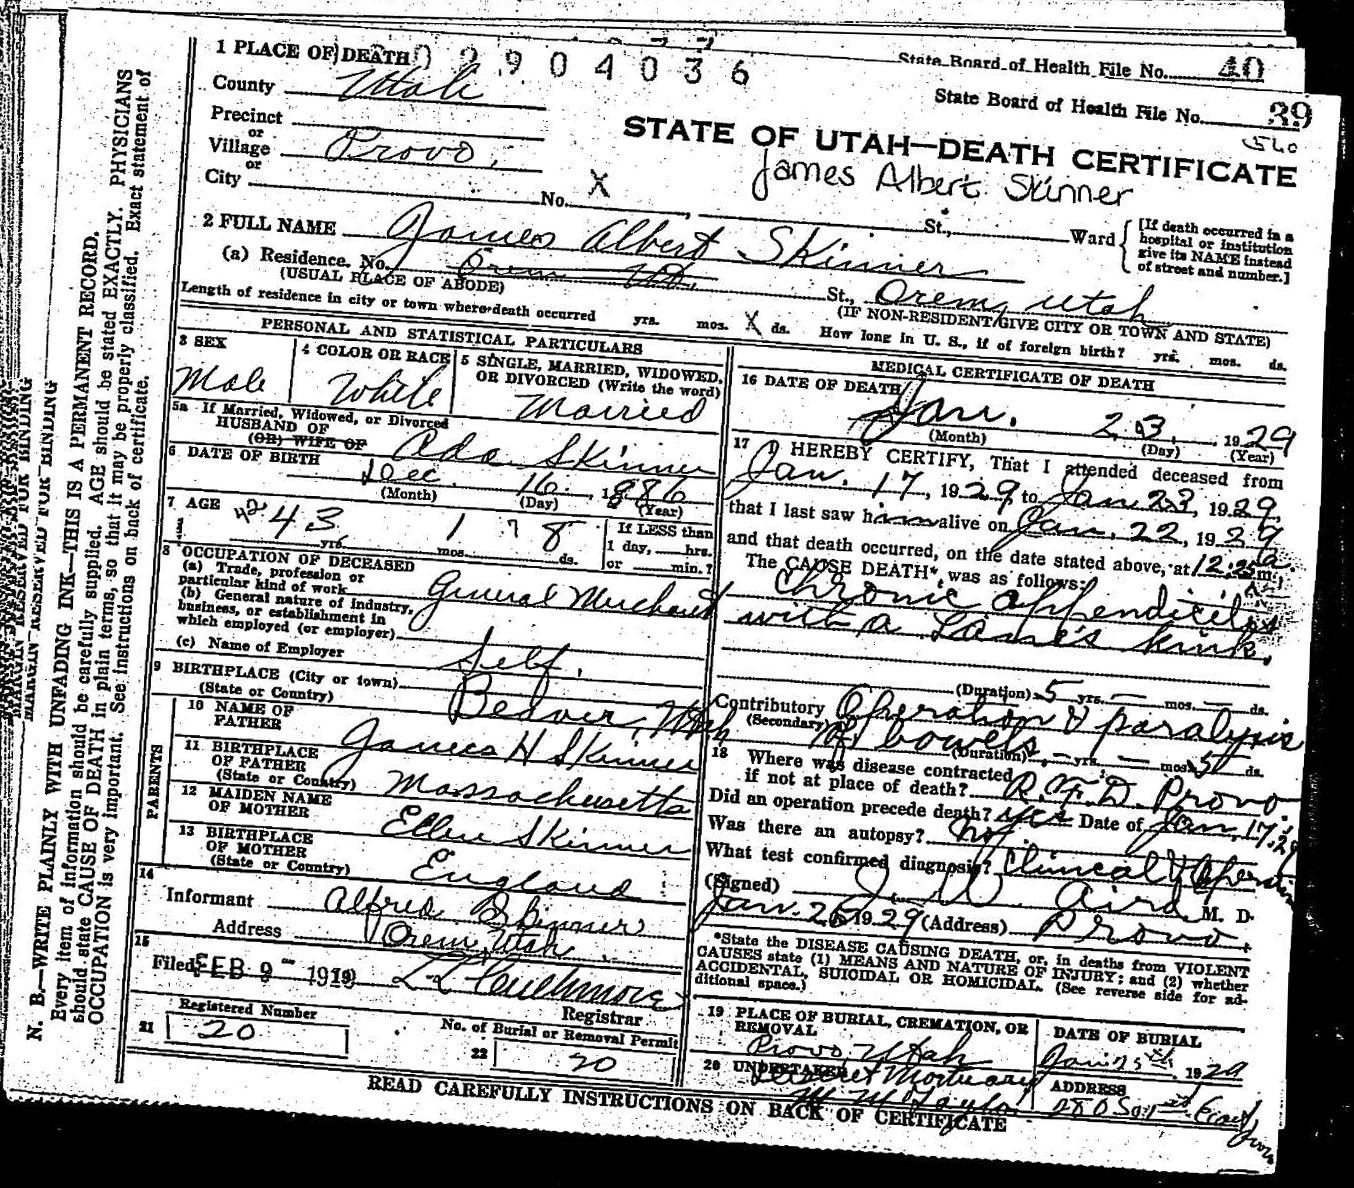 State Board of Health File No. 40
State Board of Health File No. 39
1 PLACE OF DEATH 2904036
County Utah
Precinct
or
Village Provo.
or
City
No. X St., Ward
STATE OF UTAH—DEATH CERTIFICATE
James Albert Skinner
[If death occurred in a
hospital or institution
give its NAME instead
of street and number.]
2 FULL NAME James Albert Skinner
(a) Residence. No. Orem Ut. St., Orem, Utah
(USUAL PLACE OF ABODE) (IF NON-RESIDENT GIVE CITY OR TOWN AND STATE)
Length of residence in city or town where death occurred yrs. mos. X ds. How long in U. S., if of foreign birth? yrs. mos. ds.
PERSONAL AND STATISTICAL PARTICULARS
3 SEX
Male
4 COLOR OR RACE
White
5 SINGLE, MARRIED, WIDOWED,
OR DIVORCED (Write the word)
Married
5a If Married, Widowed, or Divorced
HUSBAND OF
(OR) WIFE OF Ada Skinner
6 DATE OF BIRTH Dec. 16, 1886
(Month) (Day) (Year)
7 AGE 42 43 yrs. 1 mos. 7 8 ds.
If LESS than
1 day, hrs.
or min.?
8 OCCUPATION OF DECEASED
(a) Trade, profession or
particular kind of work General Merchant
(b) General nature of industry,
business, or establishment in
which employed (or employer)
(c) Name of Employer Self.
9 BIRTHPLACE (City or town)
(State or Country) Beaver, Utah
PARENTS
10 NAME OF
FATHER James H Skinner
11 BIRTHPLACE
OF FATHER
(State or Country) Massachusetts
12 MAIDEN NAME
OF MOTHER Ellen Skinner
13 BIRTHPLACE
OF MOTHER
(State or Country) England
14
Informant Alfred Skinner
Address Orem, Utah
15
Filed FEB 9 - 1919
Registrar
Registered Number
21 20
No. of Burial or Removal Permit
22 20
MEDICAL CERTIFICATE OF DEATH
16 DATE OF DEATH
Jan. 23, 1929
(Month) (Day) (Year)
17 I HEREBY CERTIFY, That I attended deceased from
Jan. 17, 1929, to Jan 23, 1929,
that I last saw him alive on Jan. 22, 1929
and that death occurred, on the date stated above, at 12: a m.
The CAUSE DEATH*, was as follows:
Chronic appendicitis
with a Lane's kink.
(Duration) 5 yrs. — mos. — ds.
Contributory Operation & paralysis
(Secondary) of bowels
(Duration) — yrs. — mos. 5 ds.
18 Where was disease contracted
if not at place of death? R.F.D. Provo.
Did an operation precede death? yes Date of Jan. 17-29
Was there an autopsy? No
What test confirmed diagnosis? Clinical & Operation
(Signed) J. W Aird M. D.
Jan. 26 1929 (Address) Provo.
*State the DISEASE CAUSING DEATH, or, in deaths from VIOLENT
CAUSES state (1) MEANS AND NATURE OF INJURY; and (2) whether
ACCIDENTAL, SUICIDAL OR HOMICIDAL. (See reverse side for ad-
ditional space.)
19 PLACE OF BURIAL, CREMATION, OR
REMOVAL
Provo, Utah
DATE OF BURIAL
Jan 25th 1929
20 UNDERTAKER
Deseret Mortuary
ADDRESS
READ CAREFULLY INSTRUCTIONS ON BACK OF CERTIFICATE
MARGIN RESERVED FOR BINDING
MARGIN RESERVED FOR BINDING
N. B.—WRITE PLAINLY WITH UNFADING INK—THIS IS A PERMANENT RECORD.
Every item of information should be carefully supplied. AGE should be stated EXACTLY. PHYSICIANS
should state CAUSE OF DEATH in plain terms, so that it may be properly classified. Exact statement of
OCCUPATION is very important. See instructions on back of certificate.